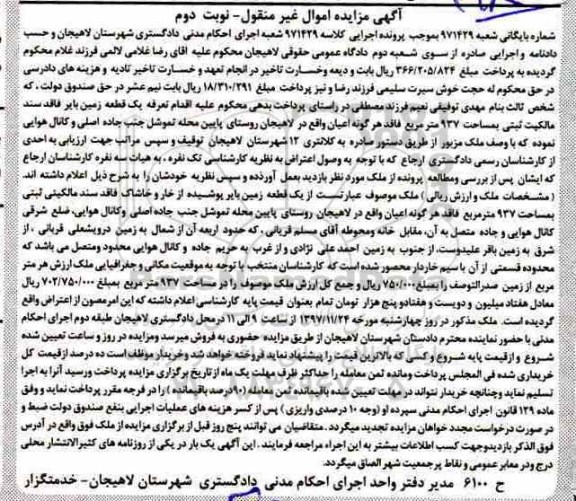 آگهی مزایده اموال غیر منقول- نوبت دوم
شماره بایگانی شعبه ۹۷۱۴۲۹ بموجب پرونده اجرایی کلاسه ۹۷۱۴۲۹ شعبه اجرای احکام مدنی دادگستری شهرستان لاهیجان و حسب
دادنامه و اجرایی صادره از سوی شعبه دوم دادگاه عمومی حقوقی لاهیجان محکوم علیه اقای رضا غلامی لالمی فرزند غلام محکوم
گردیده به پرداخت مبلغ ۳۶۶/۲۰۵/۸۲۴ ریال بابت و دیعه وخسارت تاخیر در انجام تعهد و خسارت تاخیر تادیه و هزینه های دادرسی
در حق محکوم له حجت خوش سیرت سلیمی فرزند رضا و نیز پرداخت مبلغ ۱۸/۳۱۰/۲۹۱ ریال بابت نیم عشر در حق صندوق دولت ، که
شخص ثالث بنام مهدی توفیقی نعیم فرزند مصطفی در راستای پرداخت بدهی محکوم علیه اقدام تعرفه یک قطعه زمین بایر فاقد سند
مالکیت ثبتی بمساحت ۹۳۷ متر مربع فاقد هر گونه اعیان واقع در لاهیجان روستای پایین محله تموشل جنب جاده اصلی و کانال هوایی
نموده که با وصف ملک مزبور از طریق دستور صادره به کلانتری ۱۲ شهرستان لاهیجان توقیف و سپس مراتب جهت ارزیابی به احدی
از کارشناسان رسمی دادگستری ارجاع که با توجه به وصول اعتراض به نظریه کارشناسی تک نفره ، به هیات سه نفره کارشناسان ارجاع
که ایشان پس از بررسی ومطالعه پرونده از ملک مورد نظر بازدید بعمل آورده و سپس نظریه خودشان را به شرح ذیل اعلام داشته اند.
( مشخصات ملک و ارزش ریالی ) ملک موصوف عبارتست از یک قطعه زمین بایر پوشیده از خار و خاشاک فاقد سند مالکیتی ثبتی
بمساحت ۹۳۷ مترمربع فاقد هر گونه اعیان واقع در لاهیجان روستای پایین محله تموشل جنب جاده اصلی وکانال هوایی، ضلع شرقی
کانال هوایی و جاده متصل به آن، مقابل خانه ومحوطه آقای مسلم قربانی ، که حدود اربعه آن از شمال به زمین درویشعلی قربانی ، از
شرق به زمین باقر علیدوست، از جنوب به زمین احمد علی نژادی و از غرب به حریم جاده و کانال هوایی محدود ومتصل می باشد که
محدوده قسمتی از آن با سیم خاردار محصور شده است که کارشناسان منتخب با توجه به موقعیت مکانی و جغرافیایی ملک ارزش هر متر
مربع از زمین صدرالتوصف را بمبلغ ۷۵۰/۰۰۰ ریال و جمع کل ارزش ملک موصوف را در مساحت ۹۳۷ متر مربع بمبلغ ۷۰۲/۷۵۰/۰۰۰ ریال
معادل هفتاد میلیون و دویست و هفتادو پنج هزار تومان تمام بعنوان قیمت پایه کارشناسی اعلام داشته که این امر مصون از اعتراض واقع
گردیده است. ملک مذکور در روز چهارشنبه مورخه ۱۳۹۷/۱۱/۲۴ از ساعت ۹ الی ۱۱ درمحل دادگستری لاهیجان طبقه دوم اجرای احکام
مدنی با حضور نماینده محترم دادستان شهرستان لاهیجان از طریق مزایده حضوری به فروش میرسد ومزایده در روز و ساعت تعیین شده
شروع و ازقیمت پایه شروع و کسی که بالاترین قیمت را پیشنهاد نماید فروخته خواهد شد وخریدار موظف است ده درصد از قیمت کل
خریداری شده فی المجلس پرداخت ومانده ثمن معامله را حداکثر ظرف مهلت یک ماه از تاریخ برگزاری مزایده پرداخت ورسید آنرا به اجرا
تسلیم نماید وچنانچه خریدار نتواند در مهلت تعیین شده باقیمانده ثمن معامله (۹۰درصد باقیمانده ) را در فرجه مقرر پرداخت نماید و وفق
ماده ۱۲۹ قانون اجرای احکام مدنی سپرده او (وجه ۱۰ درصدی واریزی ) پس از کسر هزینه های عملیات اجرایی بنفع صندوق دولت ضبط و
در صورت درخواست مجدد خواهان مزایده تجدید میگردد . متقاضیان می توانند پنج روز قبل از برگزاری مزایده از ملک فوق واقع در آدرس
فوق الذکر بازدیدوجهت کسب اطلاعات بیشتر به این اجراء مراجعه فرمایند . این آگهی یک بار در یکی از روزنامه های کثیرالانتشار محلی
درج ودر معابر عمومی و نقاط پرجمعیت شهر الصاق میگردد.
ح ۶۱۰۰ مدیر دفتر واحد اجرای احکام مدنی دادگستری شهرستان لاهیجان- خدمتگزار